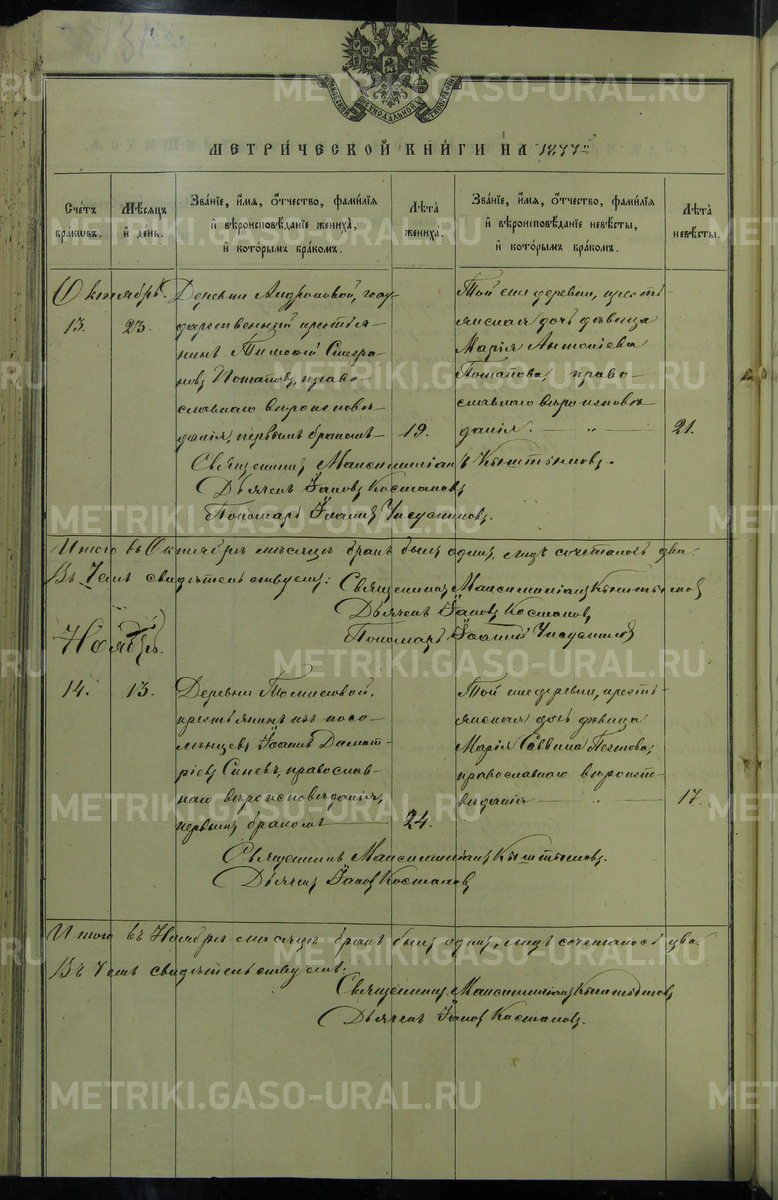 МЕТРИЧЕСКОЙ КНИГИ НА 1877й
Счетъ браковъ.
Мѣсяцъ и день.
Званіе, имя, отчество, фамилія и вѣроисповѣданіе жениха, и которымъ бракомъ.
Лѣта жениха.
Званіе, имя, отчество, фамилія и вѣроисповѣданіе невѣсты, и которымъ бракомъ.
Лѣта невѣсты.
Октябрь.
13. 23.
Деревни Андроновой, госу
дарственный крестья-
нинъ Тимофей
новъ Потаповъ, право-
славнаго вѣроисповѣ-
данія, первымъ бракомъ
19.
Той же деревни, кресть-
янская дочь дѣвица
Марія Антоніева
Потапова, право-
славнаго вѣроисповѣ
данія. — „ —
21.
Священникъ Максимиліанъ Кыштымовъ.
Дьячекъ Іаковъ Костаповъ
Пономарь Іоаннъ
Итого въ Октябрѣ мѣсяцѣ бракъ былъ одинъ, лицъ сочеталось два.
Въ чемъ свидѣтельствуемъ: Священникъ Максимиліанъ Кыштымовъ
Дьячекъ Іаковъ Костаповъ
Пономарь Іоаннъ
Ноябрь.
14. 13.
Деревни
крестьянинъ изъ посе-
ленцевъ Іоаннъ Димит-
ріевъ Синевъ, православ-
наго вѣроисповѣданія,
первымъ бракомъ
24.
Той же деревни, кресть-
янская дочь дѣвица
Марія Саввина
православнаго вѣроиспо-
вѣданія — „ —
17.
Священникъ Максимиліанъ Кыштымовъ.
Дьячекъ Іаковъ Костаповъ
Итого въ Ноябрѣ мѣсяцѣ бракъ былъ одинъ, лицъ сочеталось два.
Въ чемъ свидѣтельствуемъ:
Священникъ Максимиліанъ Кыштымовъ
Дьячекъ Іаковъ Костаповъ.
METRIKI.GASO-URAL.RU